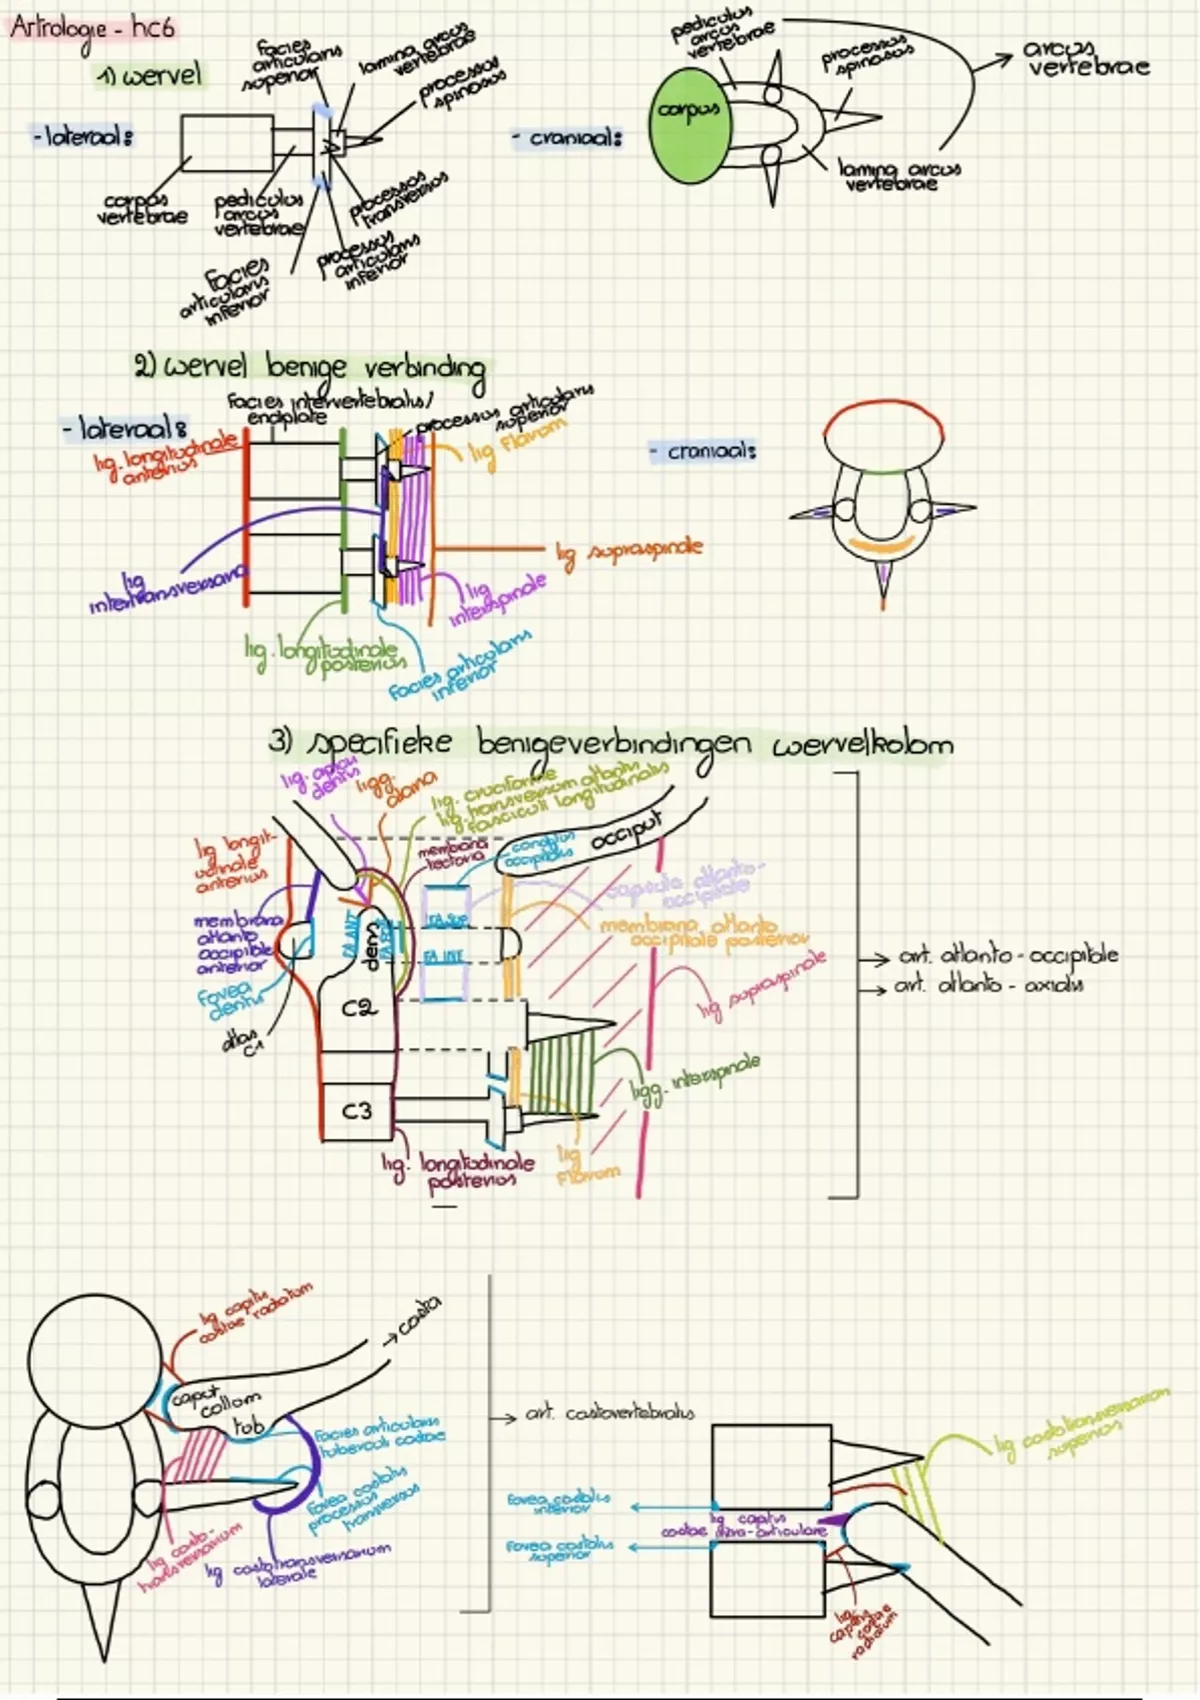 Artrologie - hc6
1) wervel
- lateraal:
facies
articularis
superior
lamina arcus
vertebrae
processus
spinosus
corpus
vertebrae
pediculus
arcus
vertebrae
processus
transversus
processus
articularis
inferior
facies
articularis
inferior
- craniaal:
pediculus
arcus
vertebrae
processus
spinosus
arcus
vertebrae
corpus
lamina arcus
vertebrae
2) wervel benige verbinding
- lateraal:
facies intervertebralis/
endplate
processus articularis
superior
lig. longitudinale
anterius
lig flavum
lig supraspinale
lig
intertransversaria
lig
interspinale
lig. longitudinale
posterius
facies articularis
inferior
- craniaal:
3) specifieke benigeverbindingen wervelkolom
lig. apicis
dentis
ligg.
alaria
lig. cruciforme
lig. transversum atlantis
fasciculi longitudinalis
lig longit-
udinale
anterius
membrana
tectoria
condylus
occipitalis
occiput
capsula atlanto-
occipitale
membrana
atlanto
occipitale
anterior
membrana atlanto
occipitale posterior
fovea
dentis
atlas
C1
FA ANT
dens
FA SUP
FA INF
C2
C3
lig supraspinale
ligg. interspinale
lig. longitudinale
posterius
lig
flavum
art. atlanto-occipitale
art. atlanto-axialis
lig capitis
costae radiatum
costa
caput
collum
tub
facies articularis
tuberculi costae
fovea costalis
processus
transversus
lig costo-
transversarium
lig costotransversarium
laterale
art. costovertebralis
fovea costalis
inferior
lig capitis
costae intra-articulare
fovea costalis
superior
lig costotransversarium
superius
lig
capitis
costae
radiatum